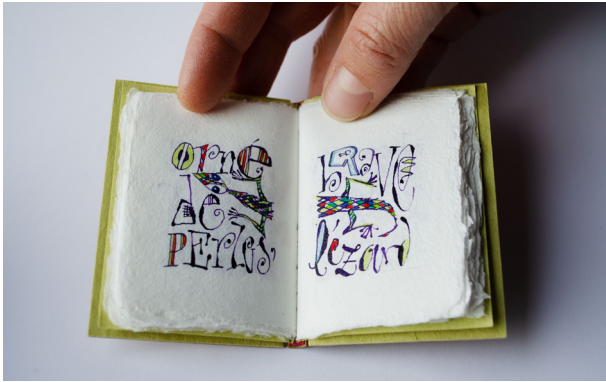 orné
de
PERles,
bRaVE
lézard